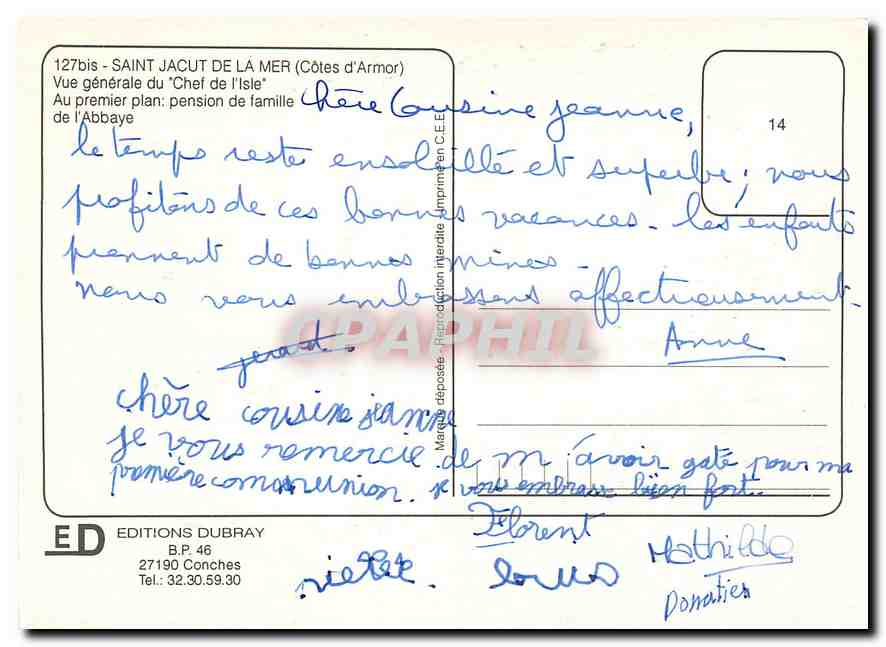 127bis - SAINT JACUT DE LA MER (Côtes d'Armor)
Vue générale du "Chef de l'Isle"
Au premier plan: pension de famille
de l'Abbaye
14
chère Cousine jeanne,
le temps reste ensoleillé et superbe; nous
profitons de ces bonnes vacances - les enfants
prennent de bonnes mines -
nous vous embrassons affectueusement -
Anne
gerard.
chère cousine jeanne
je vous remercie de m'avoir gaté pour ma
première communion. je vous embrasse bien fort.
Florent
Mathilde
Louis
Donatien
Marque déposée - Reproduction interdite - Imprimé en C.E.E.
CPAPHIL
ED EDITIONS DUBRAY
B.P. 46
27190 Conches
Tel.: 32.30.59.30